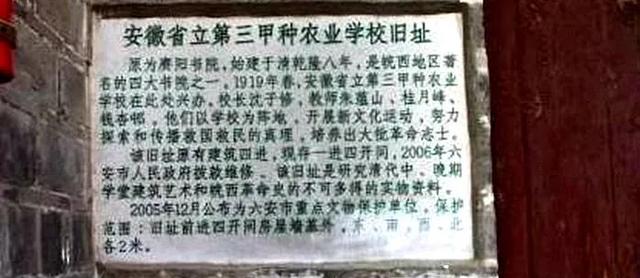 安徽省立第三甲种农业学校旧址
原为赓阳书院，始建于清乾隆八年，是皖西地区著
名的四大书院之一，1919年春，安徽省立第三甲种农业
学校在此处兴办，校长沈子修，教师朱蕴山、桂月峰、
钱杏邨，他们以学校为阵地，开展新文化运动，努力
探索和传播救国救民的真理，培养出大批革命志士。
该旧址原有建筑四进，现存一进四开间，2006年六
安市人民政府拨款维修。该旧址是研究清代中、晚期
学堂建筑艺术和皖西革命史的不可多得的实物资料。
2005年12月公布为六安市重点文物保护单位。保护
范围：旧址前进四开间房屋墙基外，东、南、西、北
各2米。